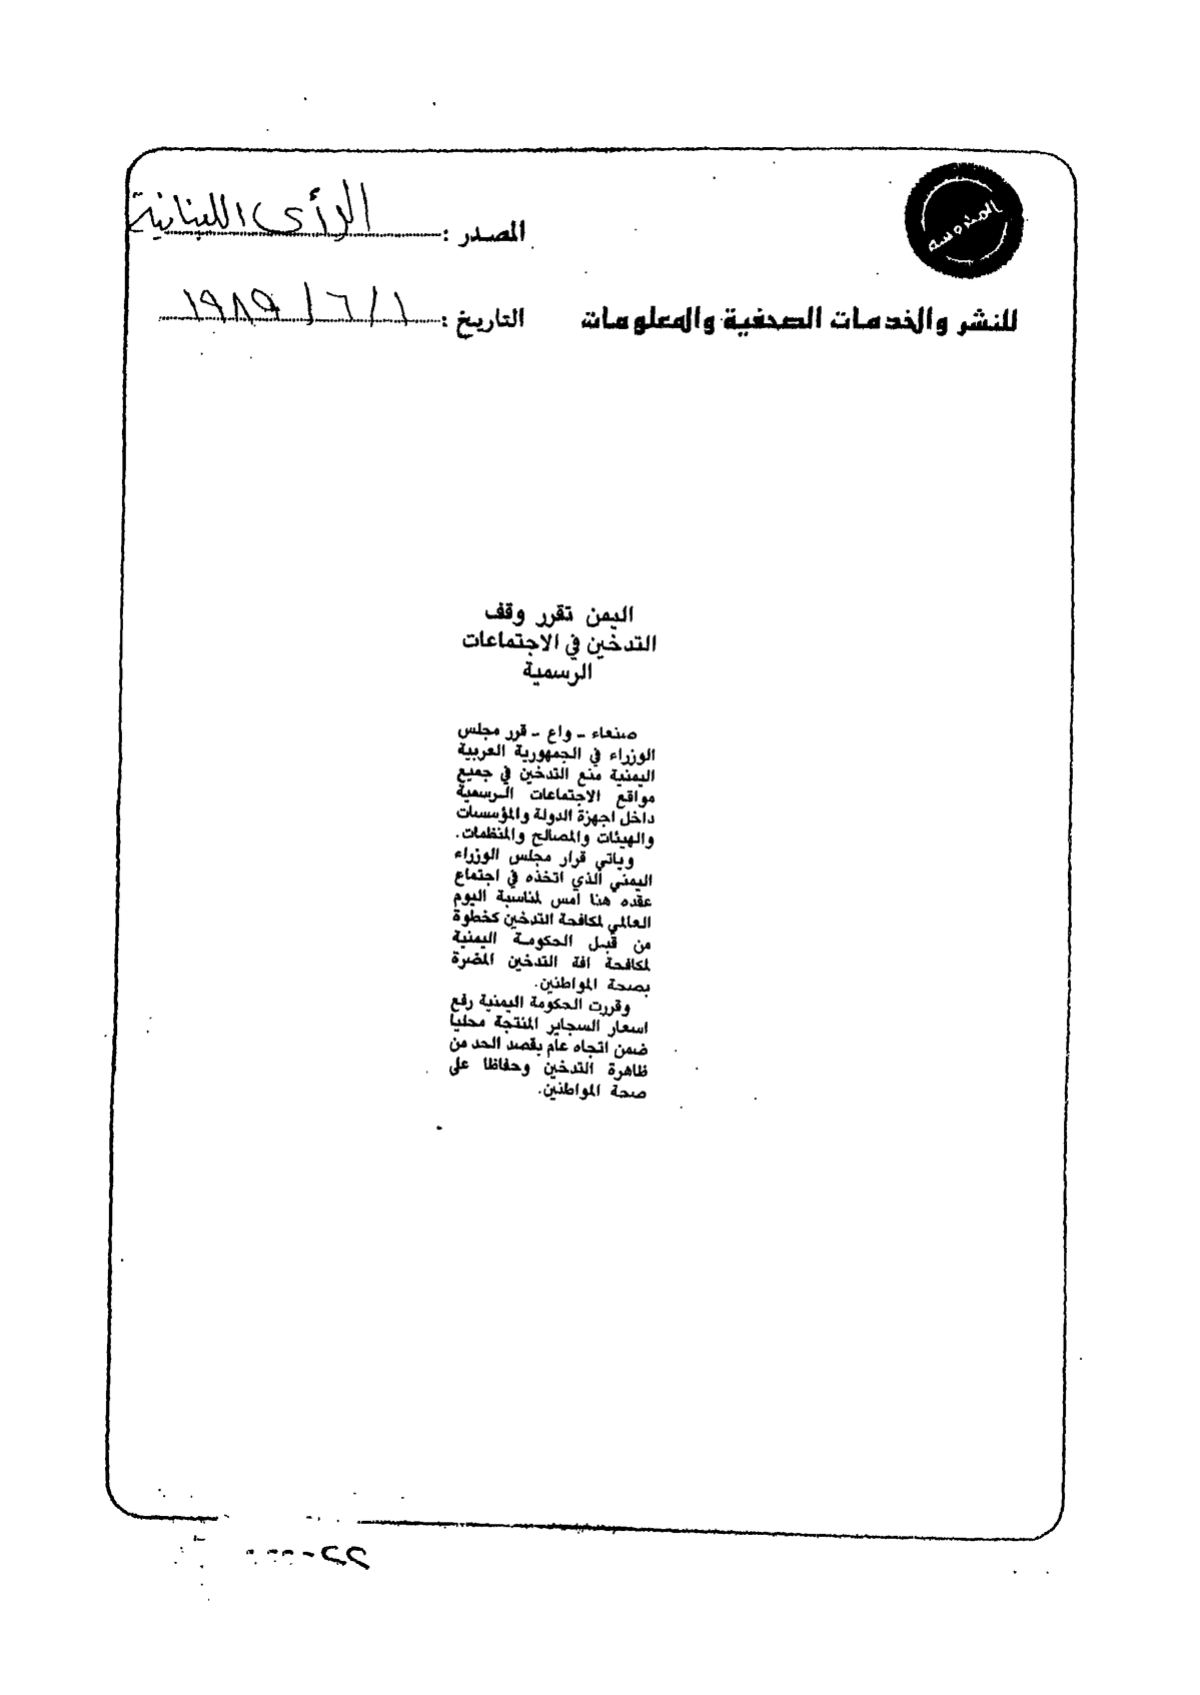 المصدر : الرأى اللبنانية
للنشر والخدمات الصحفية والمعلومات
التاريخ : ١ / ٦ / ١٩٨٩
اليمن تقرر وقف
التدخين في الاجتماعات
الرسمية
صنعاء ـ واع ـ قرر مجلس
الوزراء في الجمهورية العربية
اليمنية منع التدخين في جميع
مواقع الاجتماعات الرسمية
داخل اجهزة الدولة والمؤسسات
والهيئات والمصالح والمنظمات.
وياتي قرار مجلس الوزراء
اليمني الذي اتخذه في اجتماع
عقده هنا امس لمناسبة اليوم
العالمي لمكافحة التدخين كخطوة
من قبل الحكومة اليمنية
لمكافحة افة التدخين المضرة
بصحة المواطنين.
وقررت الحكومة اليمنية رفع
اسعار السجاير المنتجة محليا
ضمن اتجاه عام بقصد الحد من
ظاهرة التدخين وحفاظا على
صحة المواطنين.